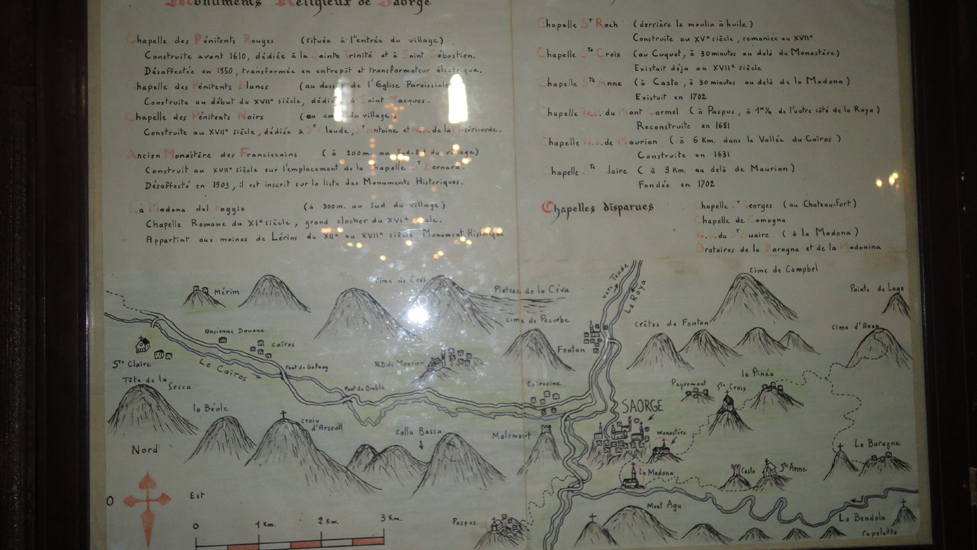 Monuments Religieux de Saorge
Chapelle des Pénitents Rouges (située à l'entrée du village)
Construite avant 1610, dédiée à la Sainte Trinité et à Saint Sébastien.
Désaffectée en 1950, transformée en entrepôt et transformateur électrique.
Chapelle des Pénitents Blancs (au dessus de l'Eglise Paroissiale
Construite au début du XVIIe siècle, dédiée à Saint Jacques.
Chapelle des Pénitents Noirs (au du village)
Construite au XVIIe siècle, dédiée à St Claude, St Antoine et N.D. de la Miséricorde.
Ancien Monastère des Franciscains (à 200m. au Sud-Est du village)
Construit au XVIIe siècle sur l'emplacement de la Chapelle St Bernard.
Désaffecté en 1903, il est inscrit sur la liste des Monuments Historiques.
La Madona del Poggio (à 300m. au Sud du village)
Chapelle Romane du XIe siècle, grand clocher du XVIe siècle.
Appartint aux moines de Lérins du XIIe au XVIIe siècle Monument Historique
Chapelle St Roch (derrière le moulin à huile)
Construite au XVe siècle, remaniée au XVIIe
Chapelle Ste Croix (au Cuquet, à 30 minutes au delà du Monastère)
Existait déjà au XVIIe siècle
Chapelle Ste Anne (à Casto, à 30 minutes au delà de la Madona)
Existait en 1702
Chapelle N.D. du Mont Carmel (à Paspus, à de l'autre côté de la Roya)
Reconstruite en 1681
Chapelle N.D. de Maurion (à 6 Km. dans la Vallée du Caïros)
Construite en 1631
Chapelle Ste Claire (à 3 Km. au delà de Maurion)
Fondée en 1702
Chapelles disparues
Chapelle St Georges (au Chateau-Fort)
Chapelle de Comagna
N.D. du Suaire (à la Madona)
Oratoires de la Baragna et de la Madonina
Mérim
Cime de Coss
Plateau de la Céva
Cime de Pesorbe
vers Tende
La Roya
Cime de Campbel
Pointe de Lugo
Ancienne Douane
Caïros
Pont de Gatany
Ste Claire
Le Caïros
N.D. de Maurion
Fontan
Crêtes du Fontan
Cime d'Anan
Tête de la
Secca
Pont du Diable
Caïrosine
la Béole
Croix
d'Arseoll
Colla Bassa
Malamort
SAORGE
Peyremont
Ste Croix
la Pinéa
Monastère
La Madona
Casto
Ste Anne
La Baragne
Nord
O
Est
0 1 Km. 2 Km. 3 Km.
Paspus
Mont Agu
La Bendola
Capelette